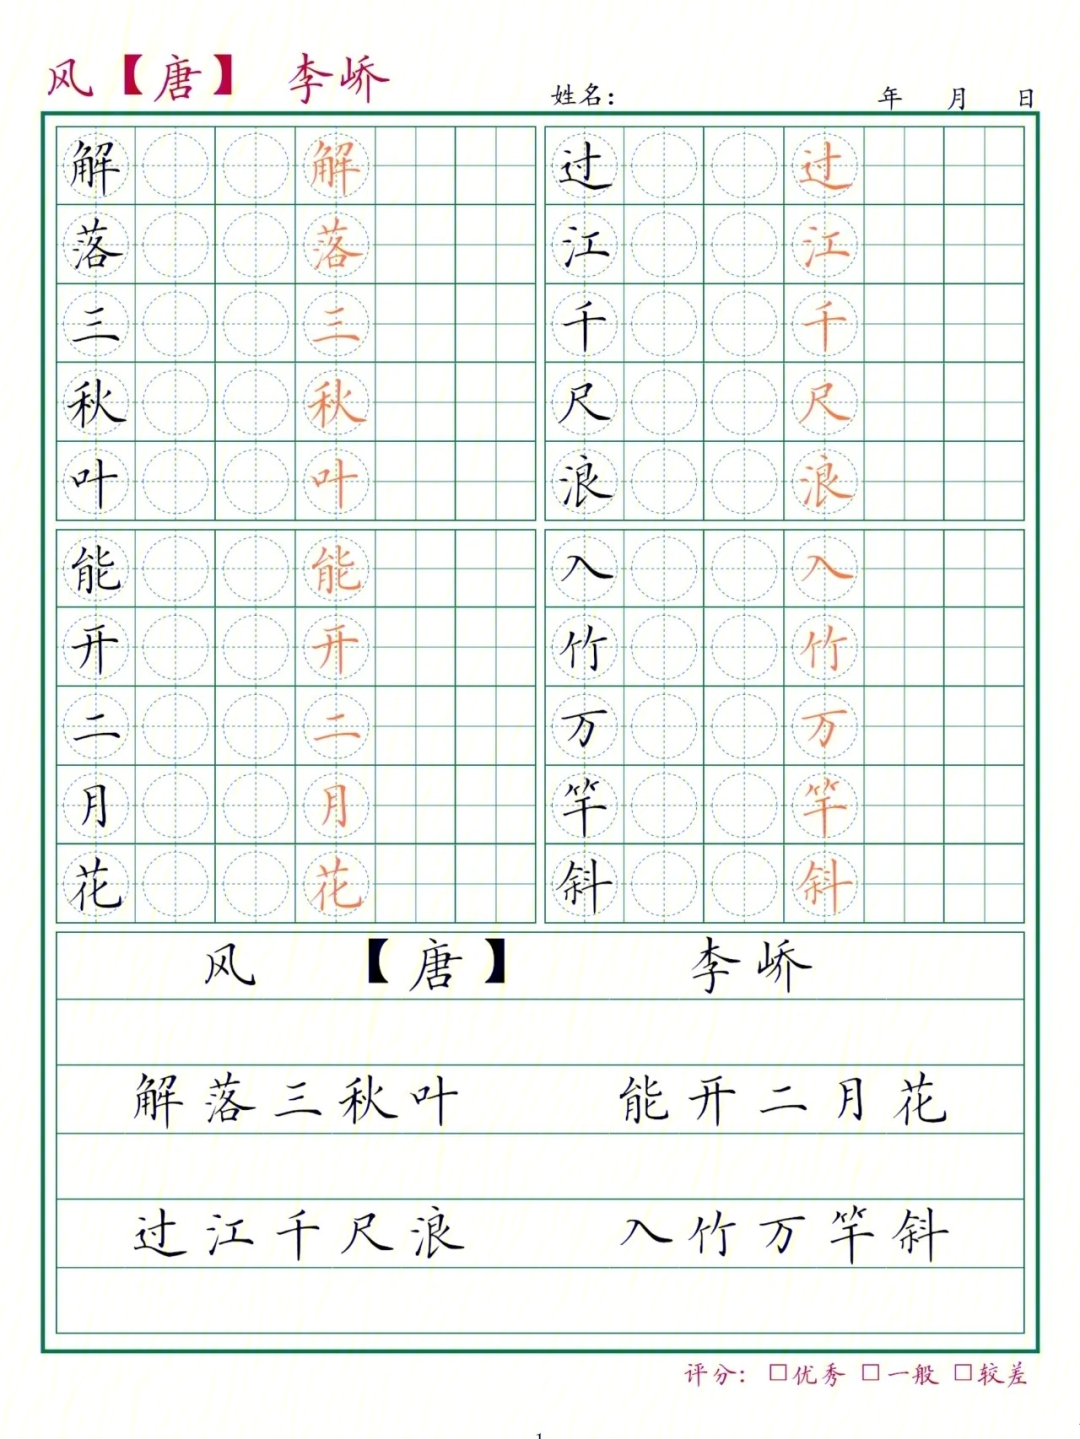 风【唐】 李峤
姓名： 年 月 日
解 解 过 过
落 落 江 江
三 三 千 千
秋 秋 尺 尺
叶 叶 浪 浪
能 能 入 入
开 开 竹 竹
二 二 万 万
月 月 竿 竿
花 花 斜 斜
风 【唐】 李峤
解落三秋叶 能开二月花
过江千尺浪 入竹万竿斜
评分：□优秀 □一般 □较差
1